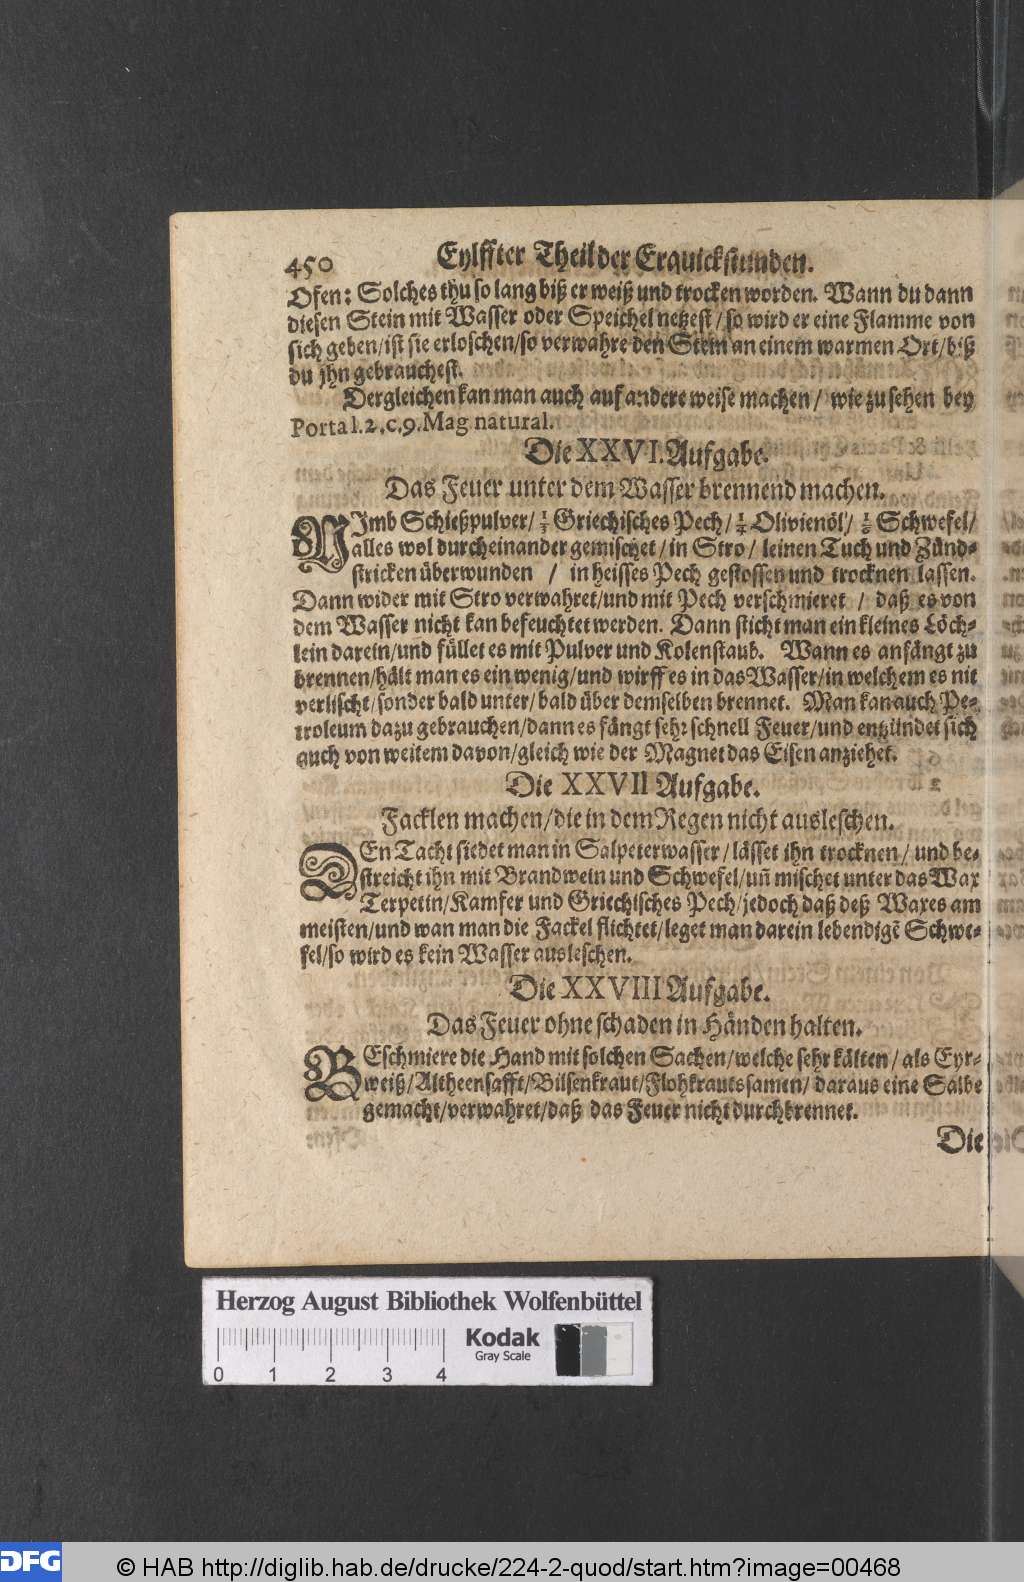 450 Eylffter Theil der Erquickstunden.
Ofen: Solches thu so lang biß er weiß und trocken worden. Wann du dann
diesen Stein mit Wasser oder Speichel netzest / so wird er eine Flamme von
sich geben/ist sie erloschen/so verwahre den Stein an einem warmen Ort/biß
du jhn gebrauchest.
Dergleichen kan man auch auf andere weise machen / wie zu sehen bey
Porta l.2.c.9.Mag natural.
Die XXVI. Aufgabe.
Das Feuer unter dem Wasser brennend machen.
NImb Schießpulver/ ⅓ Griechisches Pech/ ¼ Olivienöl/ ⅙ Schwefel/
alles wol durcheinander gemischet / in Stro / leinen Tuch und Zünd-
stricken überwunden / in heisses Pech gestossen und trocknen lassen.
Dann wider mit Stro verwahret/und mit Pech verschmieret / daß es von
dem Wasser nicht kan befeuchtet werden. Dann sticht man ein kleines Löch-
lein darein/und füllet es mit Pulver und Kolenstaub. Wann es anfängt zu
brennen/hält man es ein wenig/und wirff es in das Wasser/in welchem es nit
verlischt/sonder bald unter/bald über demselben brennet. Man kan auch Pe-
troleum dazu gebrauchen/dann es fängt sehr schnell Feuer/und entzündet sich
auch von weitem davon/gleich wie der Magnet das Eisen anziehet.
Die XXVII Aufgabe.
Facklen machen/die in dem Regen nicht ausleschen.
DEn Tacht siedet man in Salpeterwasser / lässet ihn trocknen / und be-
streicht ihn mit Brandwein und Schwefel/uñ mischet unter das Wax
Terpetin/Kamfer und Griechisches Pech/jedoch daß deß Waxes am
meisten/und wan man die Fackel flichtet/leget man darein lebendigē Schwe-
fel/so wird es kein Wasser ausleschen.
Die XXVIII Aufgabe.
Das Feuer ohne schaden in Händen halten.
BEschmiere die Hand mit solchen Sachen/welche sehr kälten / als Eyr-
weiß/Altheensafft/Bilsenkraut/Flohkrautssamen/ daraus eine Salbe
gemacht/verwahret/daß das Feuer nicht durchbrennet.
Die
Herzog August Bibliothek Wolfenbüttel
Kodak
Gray Scale
0 1 2 3 4
DFG © HAB http://diglib.hab.de/drucke/224-2-quod/start.htm?image=00468